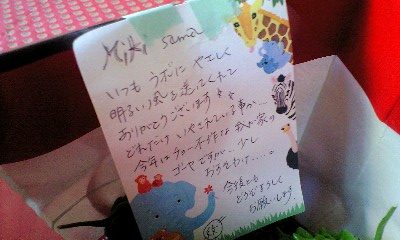 Miki sama
いつも ラボに やさしく
明るい風を送ってくれて
ありがとうございます
どれだけ いやされている事か…
今年は チョー不作な 我が家の
ゴーヤですが… 少し
おすそわけ…
今後とも
どうぞよろしく
お願いします